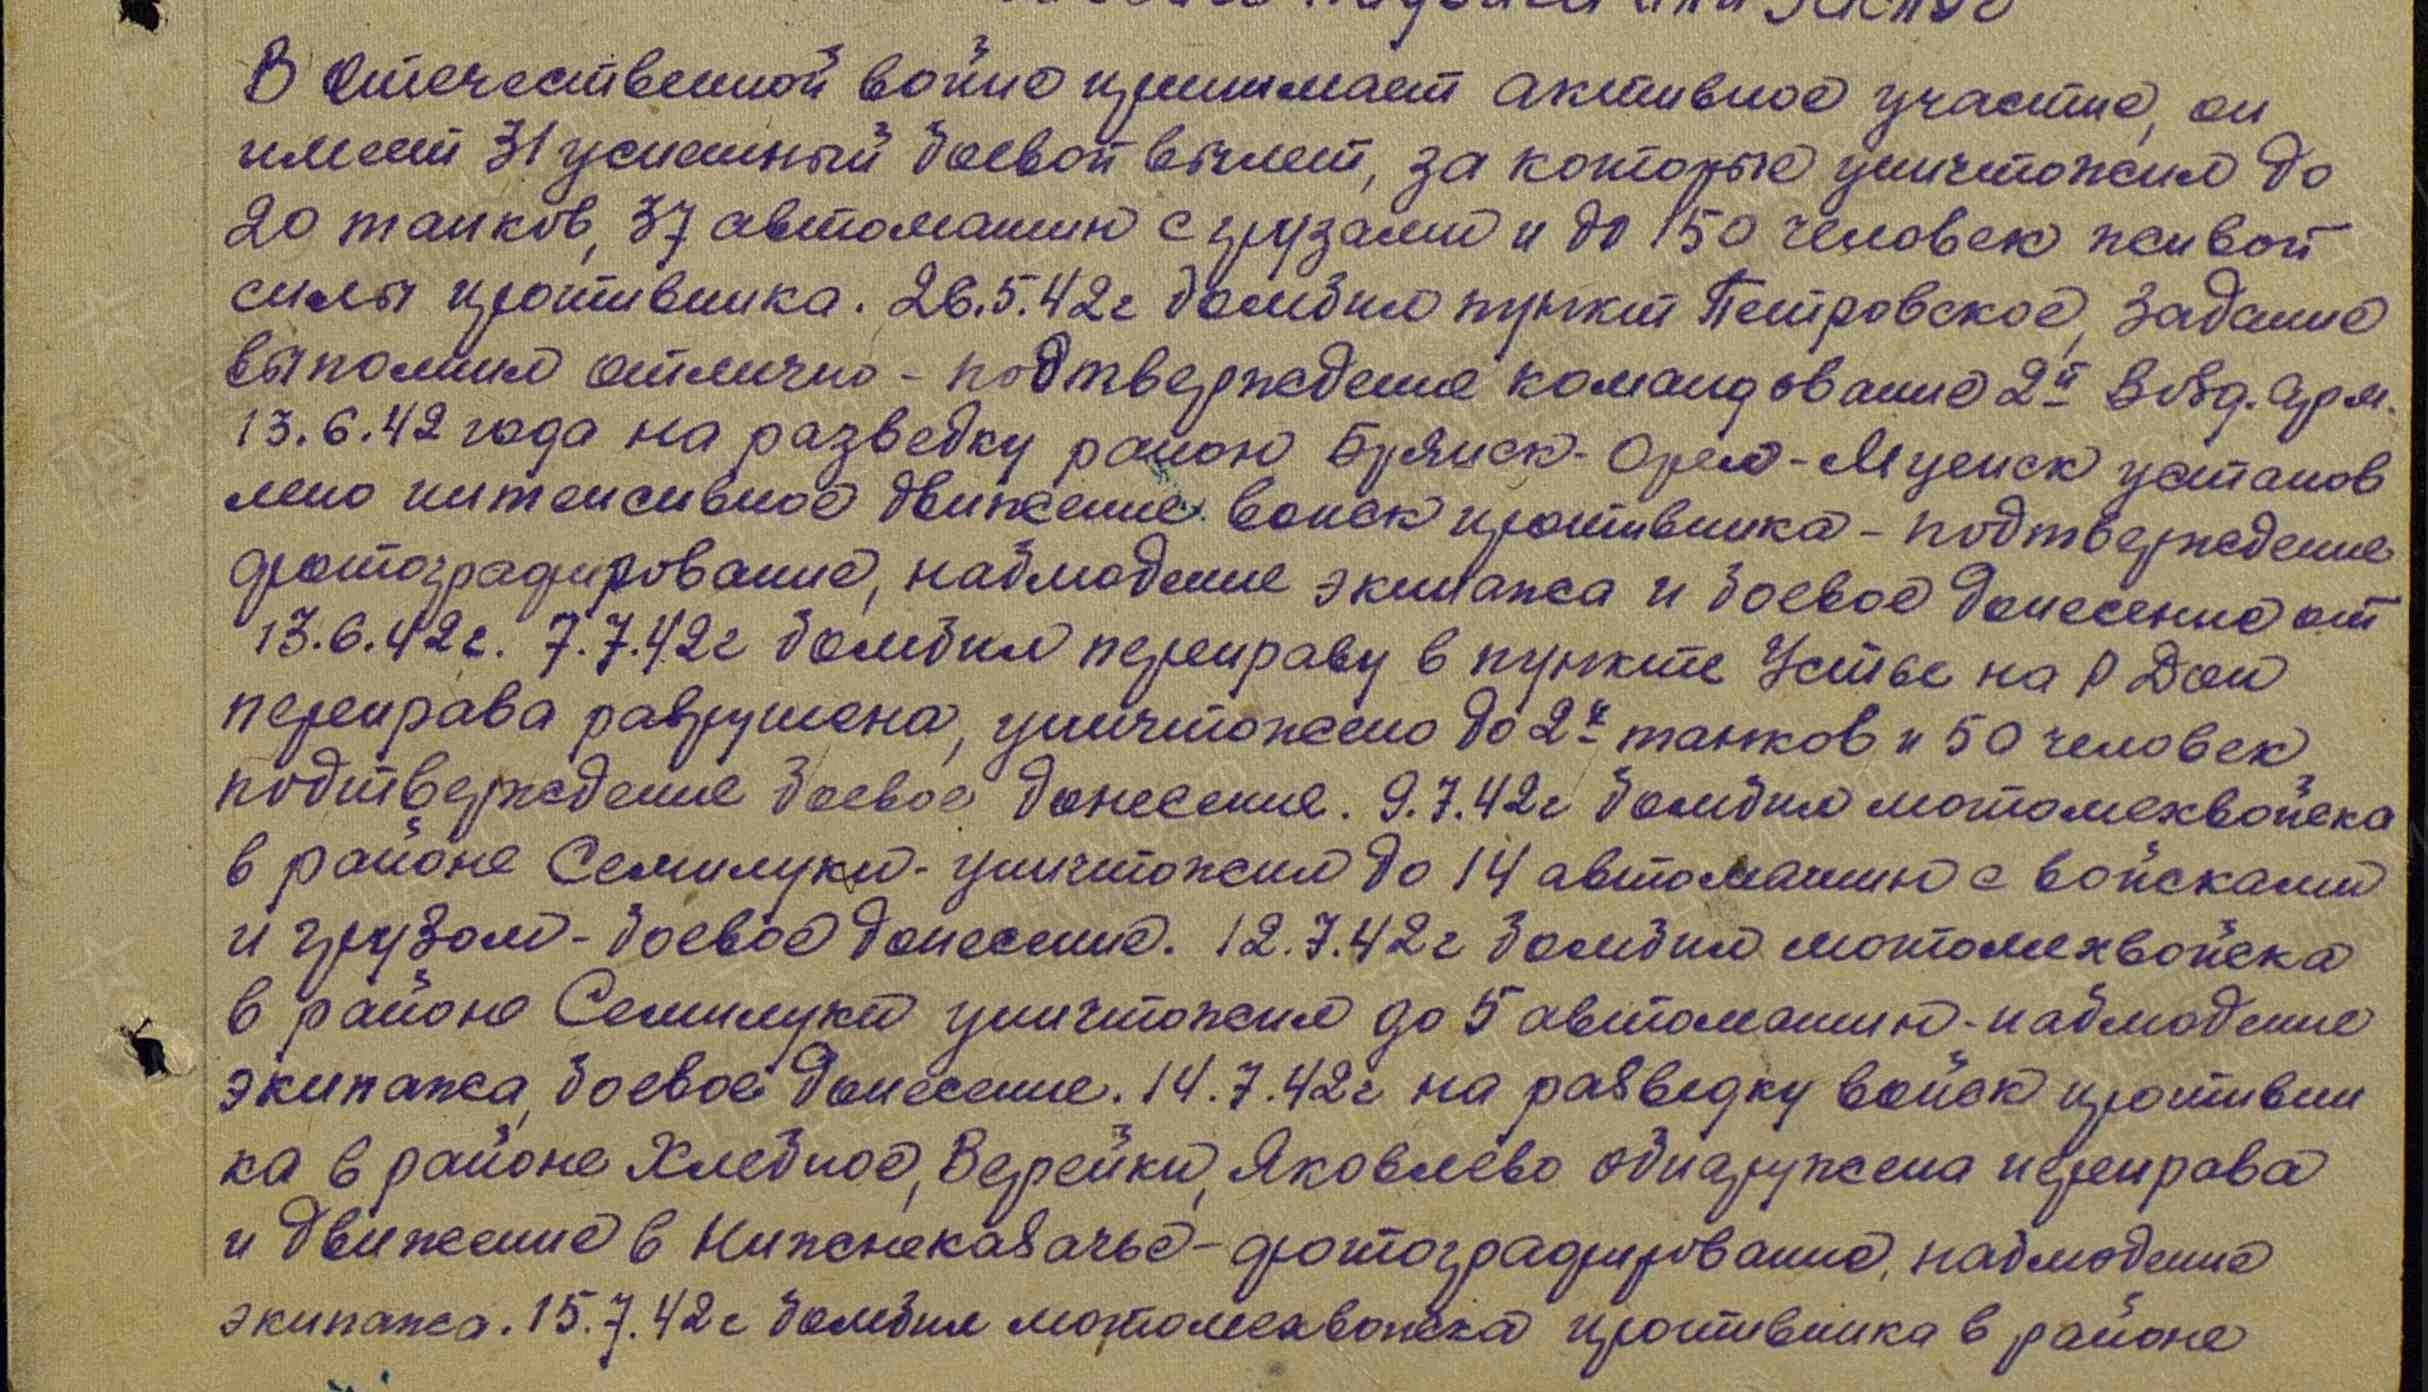 В Отечественной войне принимает активное участие, он
имеет 31 успешный боевой вылет, за которые уничтожил до
20 танков, 37 автомашин с грузами и до 150 человек живой
силы противника. 26.5.42г бомбил пункт Петровское, задание
выполнил отлично - подтверждение командование 2й Возд. Арм.
13.6.42 года на разведку район Брянск - Орел - Мценск установ
лено интенсивное движение войск противника - подтверждение
фотографирование, наблюдение экипажа и боевое донесение от
13.6.42г. 7.7.42г бомбил переправу в пункте Устье на р Дон
переправа разрушена, уничтожено до 2х танков и 50 человек
подтверждение боевое донесение. 9.7.42г бомбил мотомехвойска
в районе Семилуки - уничтожил до 14 автомашин с войсками
и грузом - боевое донесение. 12.7.42г бомбил мотомехвойска
в районе Семилуки уничтожил до 5 автомашин - наблюдение
экипажа, боевое донесение. 14.7.42г на разведку войск противни
ка в районе Хлебное, Верейки, Яковлево обнаружена переправа
и движение в Нижнеказачье - фотографирование, наблюдение
экипажа. 15.7.42г бомбил мотомехвойска противника в районе